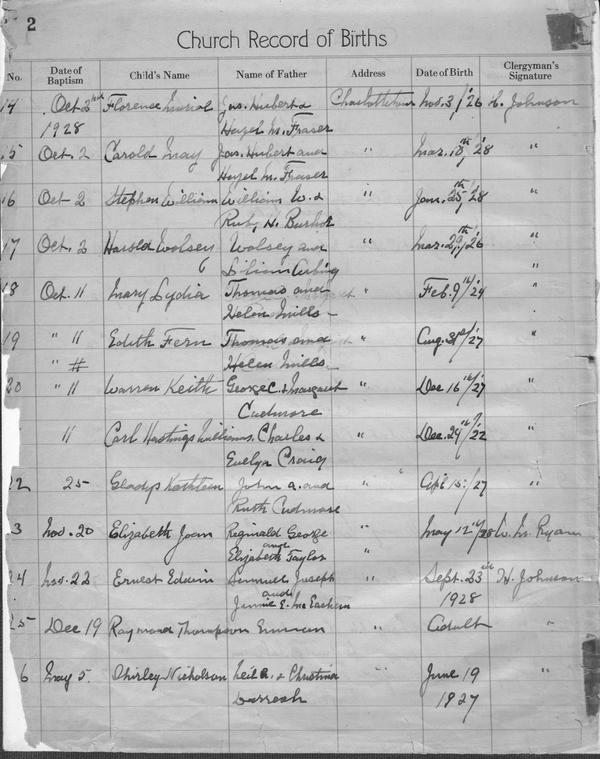 2
Church Record of Births
No. Date of Baptism Child's Name Name of Father Address Date of Birth Clergyman's Signature
14 Oct 2nd Florence Muriel Jas. Hubert & Charlottetown Nov. 3, '26 H. Johnson
1928 Hazel M. Fraser
15 Oct. 2 Carold May Jas. Hubert and " Mar. 18th '28 "
Hazel M. Fraser
16 Oct 2 Stephen William William W. & " Jan. 25th '28 "
Ruby H.
17 Oct. 2 Harold Wolsey Wolsey and " Mar. 29th '26
6 Liliam "
18 Oct. 11 Mary Lydia Thomas and " Feb. 9th '24
Helen Mills
19 " 11 Edith Fern Thomas and " Aug. '27 "
" Helen Mills
20 " 11 Warren Keith George C. & Margaret " Dec 16th '27 "
Cudmore
11 Carl Hastings Williams, Charles & " Dec. 29th '22 "
Evelyn Craig
22 25 Gladys Kathleen John A. and " Apl 15/27 "
Ruth Cudmore
3 Nov. 20 Elizabeth Joan Reginald George " May 12th/28 W. M. Ryan
and
Elizabeth Taylor "
24 Nov. 22 Ernest Edwin Samuel Joseph " Sept. 23rd H. Johnson
and
Jennie E. McEachern 1928
25 Dec 19 Raymond Thompson " Adult "
6 May 5. Shirley Nicholson Neil A. & Christina " June 19 "
Darrach 1927